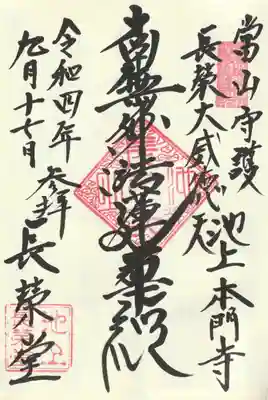 当山守護
長榮大威徳天
池上本門寺
南無妙法蓮華経
令和四年
九月十七日
参拝
長榮堂